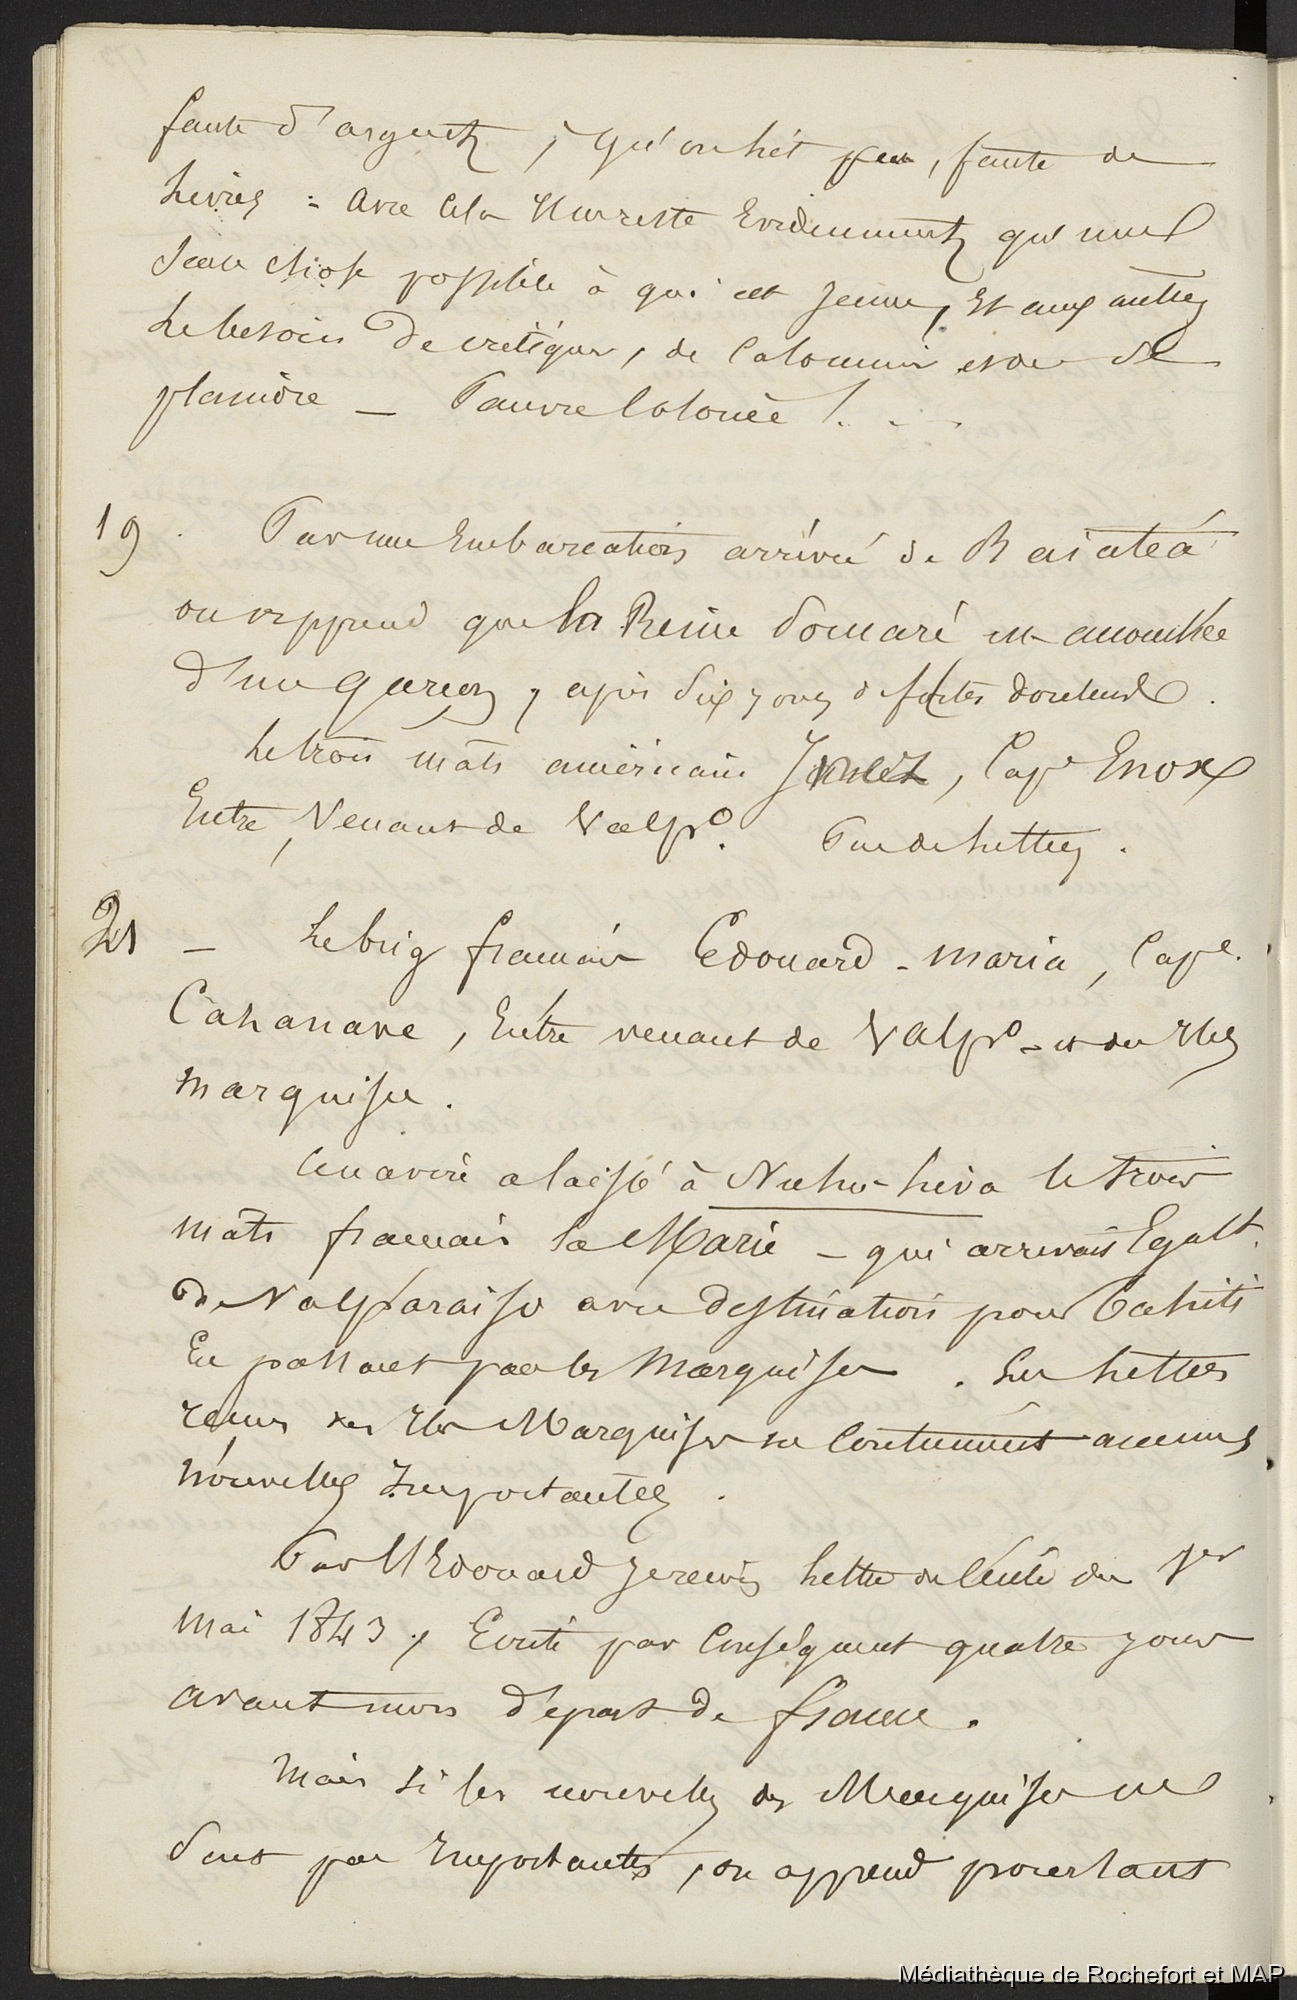 faute d'argent, qu'on lit peu, faute de
livres : avec cela il ne reste Evidemment qu'une
seule chose possible à qui est jeune, Et aux autres
le besoin de critiquer, de calomnier et de se
plaindre — Pauvre Colonie ! . . .
19 . Par une Embarcation arrivée de Raiatéa
on apprend que la Reine Pomaré est accouchée
d'un garçon, après dix jours de fortes douleurs.
Le trois mats américain, Cape Enox
Entre, Venant de Valpo. Pas de lettres.
21 — Le brig français Edouard-Maria, Cape.
Cahanave, Entre venant de Valpo - et des Iles
Marquises.
Ce navire a laissé à Nuhu-hiva le trois
mats français la Marie — qui arrivait Egalt.
de Valparaiso avec destination pour Tahiti
En passant par les Marquises. Les lettres
recues des Iles Marquises ne Contiennent aucunes
nouvelles Importantes.
Par l'Edouard je recois lettre de du 1er
mai 1843, Ecrite par Conséquent quatre jours
avant mon départ de france.
Mais si les nouvelles des Marquises ne
sont pas Importantes, on apprend pourtant
Médiathèque de Rochefort et MAP